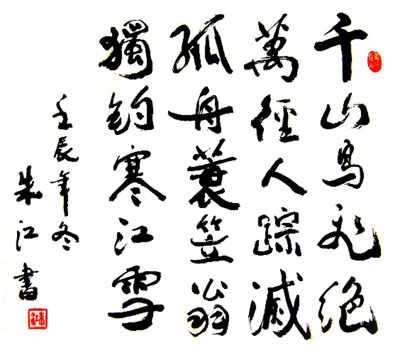 千山鳥飛絕
萬徑人踪滅
孤舟蓑笠翁
獨釣寒江雪
壬辰年冬
朱江書